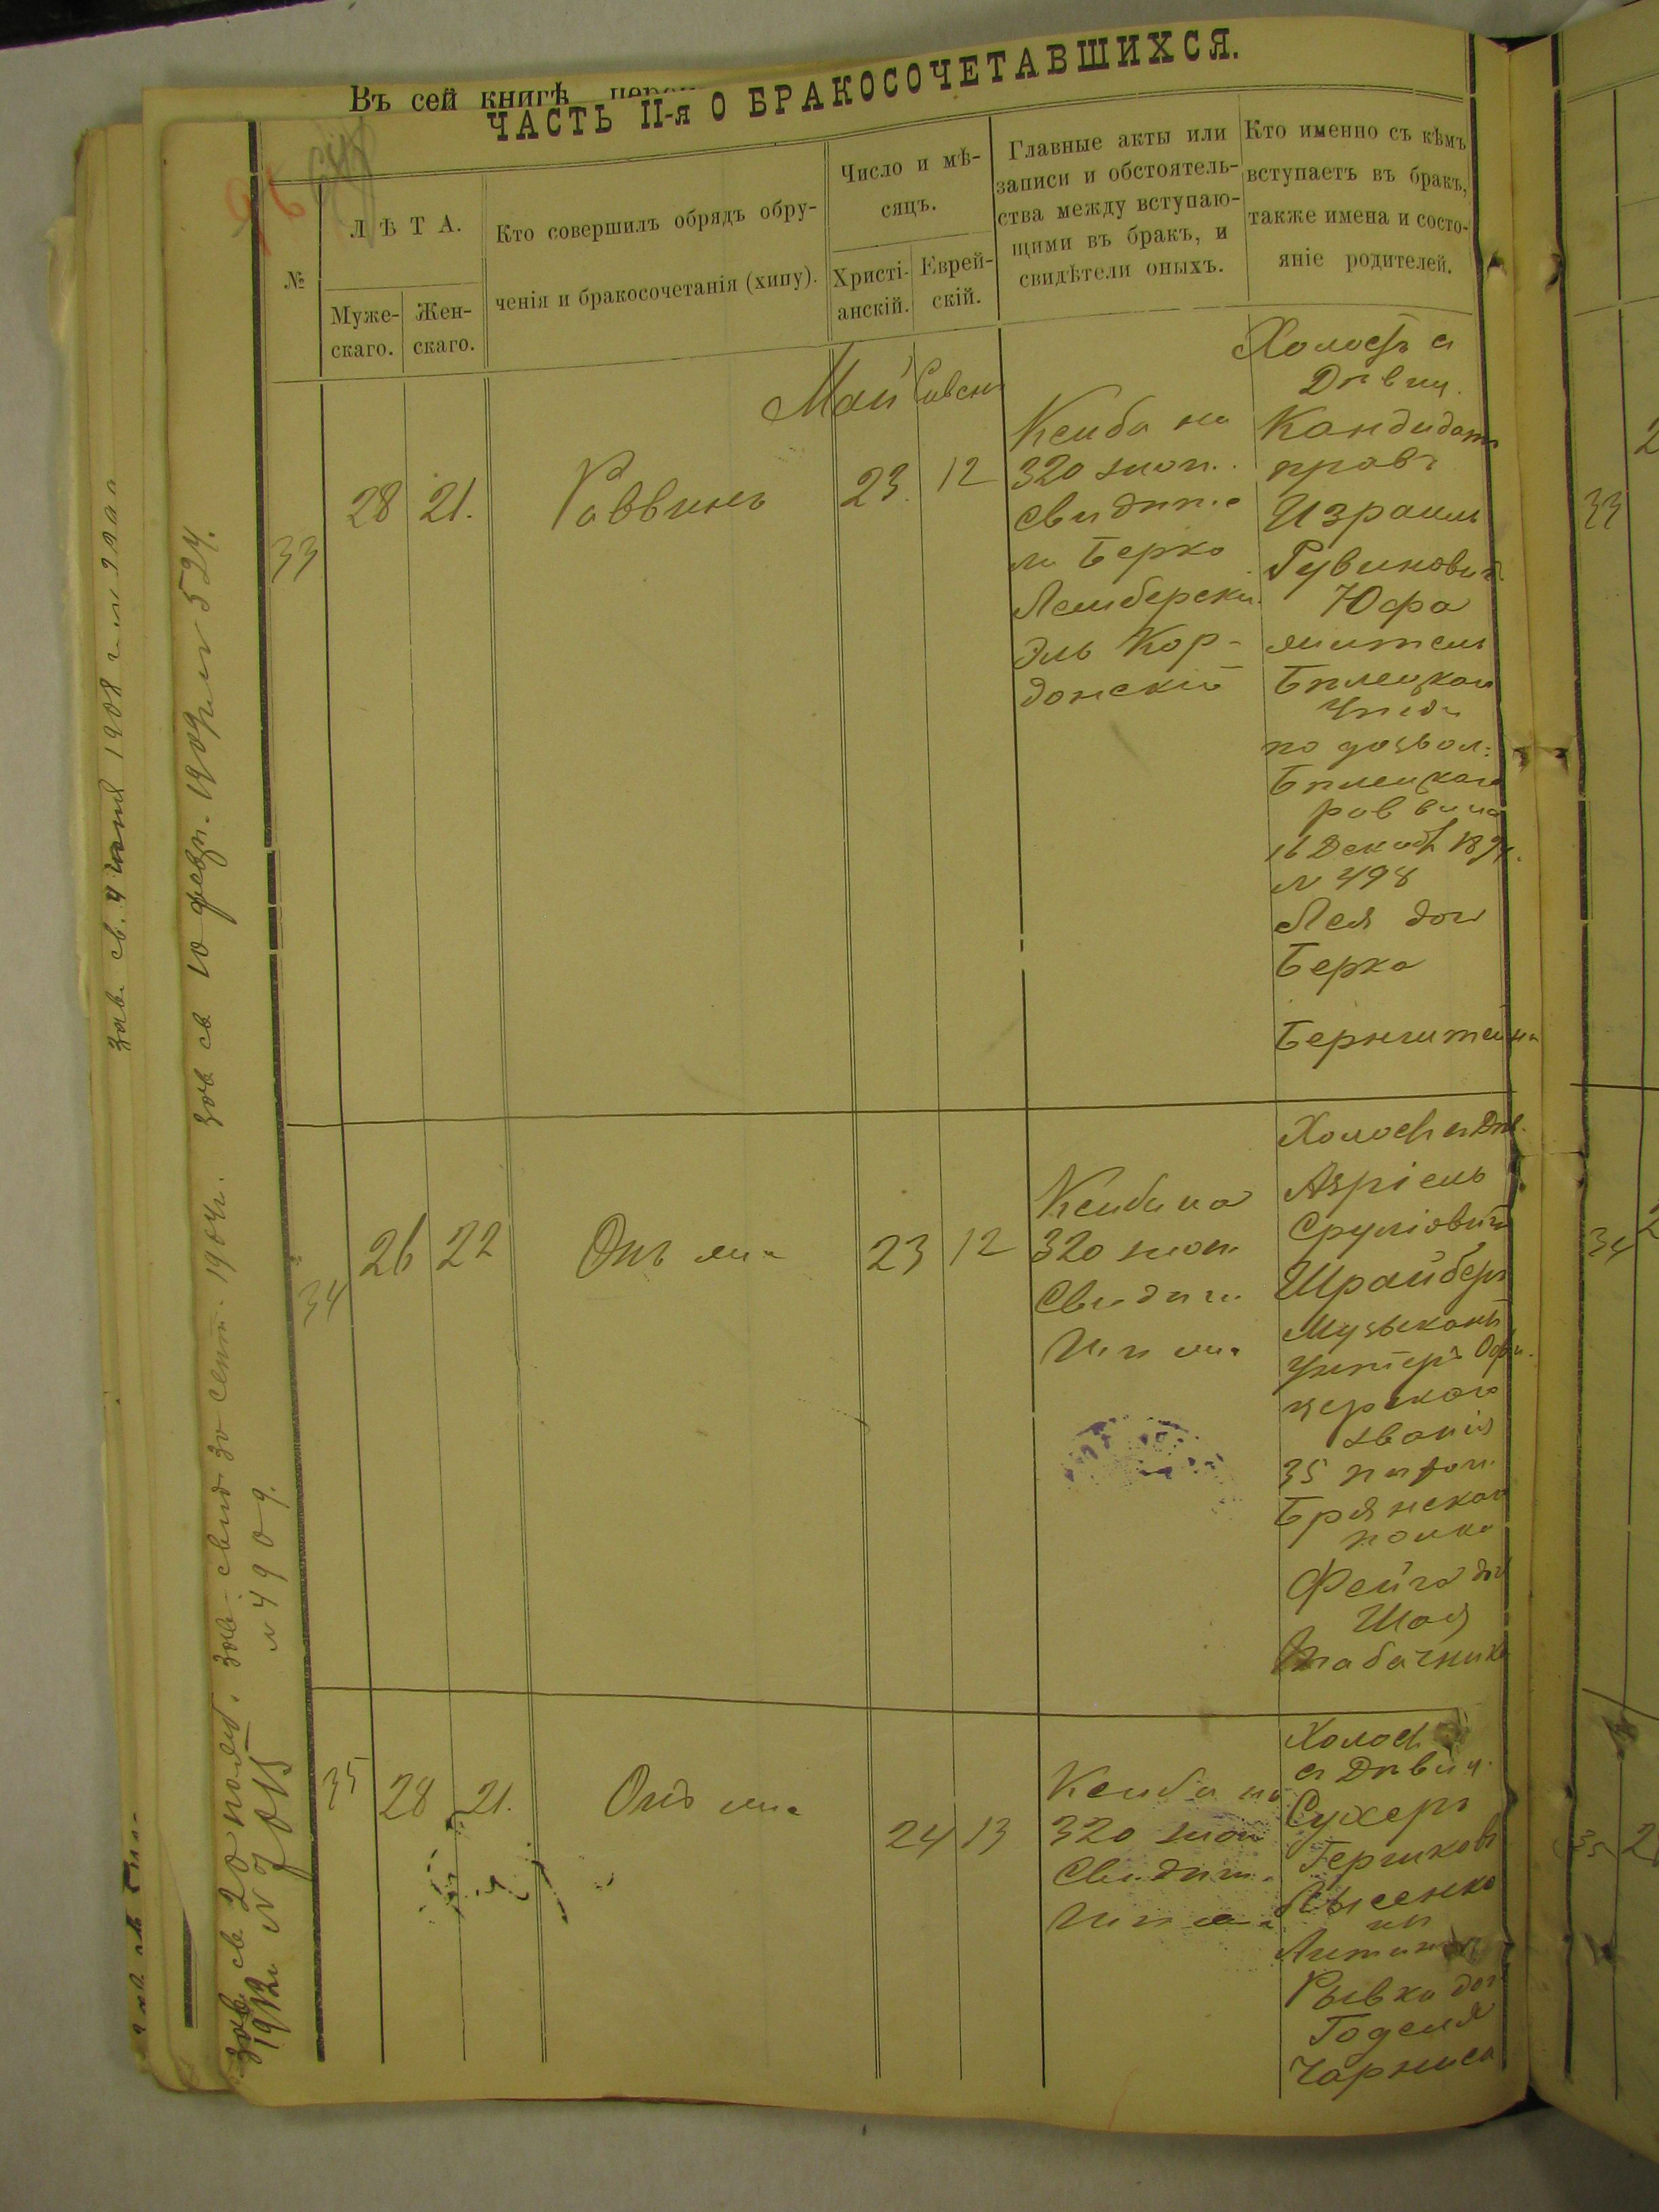 Въ сей книгѣ
ЧАСТЬ II-я О БРАКОСОЧЕТАВШИХСЯ.
№
ЛѢТА.
Муже-
скаго.
Жен-
скаго.
Кто совершилъ обрядъ обру-
ченія и бракосочетанія (хипу).
Число и мѣ-
сяцъ.
Христі-
анскій.
Еврей-
скій.
Главные акты или
записи и обстоятель-
ства между вступаю-
щими въ бракъ, и
свидѣтели оныхъ.
Кто именно съ кѣмъ
вступаетъ въ бракъ,
также имена и состо-
яніе родителей.
Май
33
28
21.
Раввинъ
23.
12
Ксиба на
320 злот.
Свидѣте
ли Берко
Лембергски.
Эль Кор-
донскій
Холостъ съ
Дѣвиц.
Кандидатъ
правъ
Израиль
Рувиновичъ
Юфа
житель
Бѣлецкаго
по дозвол:
Бѣлецкаго
раввина
16 Декаб
№ 498
Лея доч
Берка
Бернштейна
34
26
22
Онъ же
23
12
Ксиба на
320 злот
Свидѣт
Тѣ же
Холост съ Дѣв.
Азріель
Сруліовичъ
Шрайберъ
Музыкантъ
Унтеръ Офи-
церскаго
званія
35 пѣхот.
Брянскаго
полка
Фейга доч
Шая
Табачника
35
28
21.
Онъ же
24
13
Ксиба на
320 злот
Свидѣт.
Тѣ же
Холост
съ Дѣвиц.
Сухеръ
Гершков
Лысенко
Рывка доч
Годеля
Чарниса
зав. св 10 февр. 1909 г. № 524.
зав. свид 30 сент. 1904 г.
№ 4909.
зав. св 20 нояб.
1912 г.
33
34
35